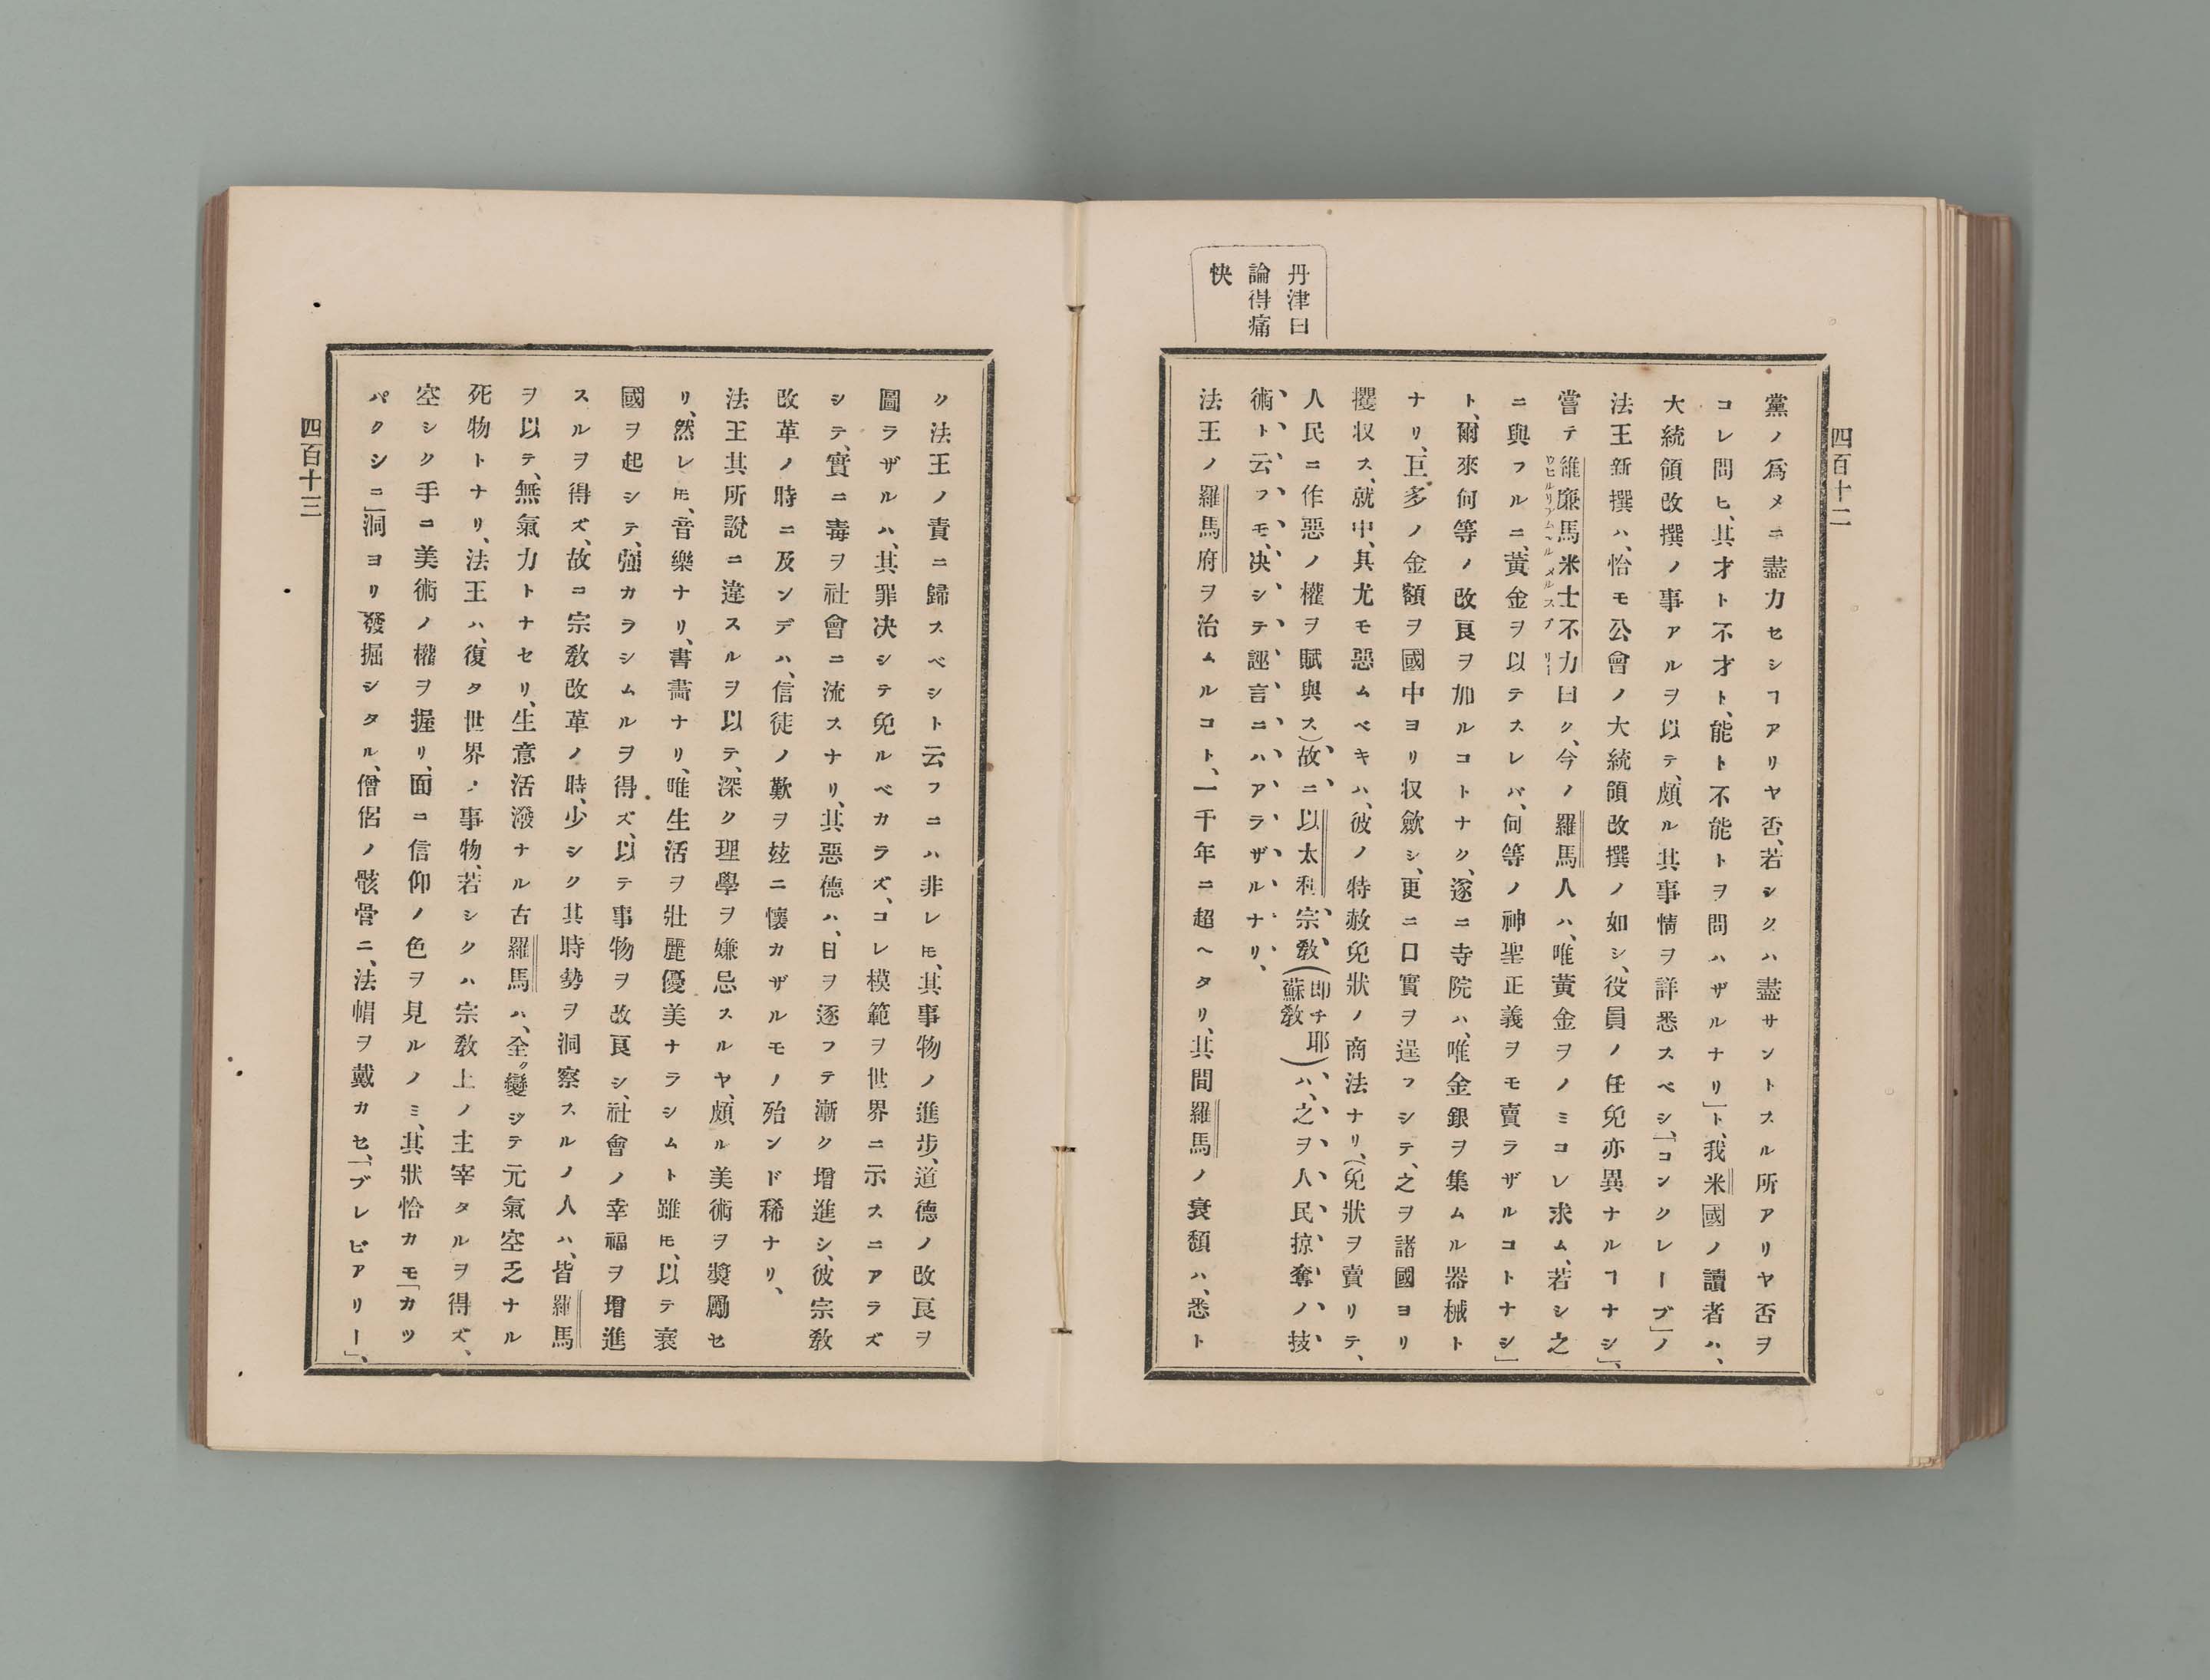 四百十二
丹津曰
論得痛
快
黨ノ爲メニ盡力セシヿアリヤ否、若シクハ盡サントスル所アリヤ否ヲ
コレ問ヒ、其才ト不才ト、能ト不能トヲ問ハザルナリ」ト、我米國ノ讀者ハ、
大統領改撰ノ事アルヲ以テ、頗ル其事情ヲ詳悉スベシ、「コンクレーブ」ノ
法王新撰ハ、恰モ公會ノ大統領改撰ノ如シ、役員ノ任免亦異ナルヿナシ」、
嘗テ維廉馬米士不力曰ク、今ノ羅馬人ハ、唯黃金ヲノミコレ求ム、若シ之
ニ與フルニ、黃金ヲ以テスレバ、何等ノ神聖正義ヲモ賣ラザルコトナシ」
ト、爾來何等ノ改良ヲ加ルコトナク、遂ニ寺院ハ、唯金銀ヲ集ムル器械ト
ナリ、巨多ノ金額ヲ國中ヨリ収歛シ、更ニ口實ヲ逞フシテ、之ヲ諸國ヨリ
攫収ス、就中、其尤モ惡ムベキハ、彼ノ特赦免狀ノ商法ナリ、(免狀ヲ賣リテ、
人民ニ作惡ノ權ヲ賦與ス)故ニ以太利宗敎(即チ耶蘇敎)ハ、之ヲ人民掠奪ノ技
術ト云フモ、决シテ誣言ニハアラザルナリ、
法王ノ羅馬府ヲ治ムルコト、一千年ニ超ヘタリ、其間羅馬ノ衰頽ハ、悉ト
ク法王ノ責ニ歸スベシト云フニハ非レ𪜈、其事物ノ進步、道德ノ改良ヲ
圖ラザルハ、其罪决シテ免ルベカラズ、コレ模範ヲ世界ニ示スニアラズ
シテ、實ニ毒ヲ社會ニ流スナリ、其惡德ハ、日ヲ逐フテ漸ク增進シ、彼宗敎
改革ノ時ニ及ンデハ、信徒ノ歎ヲ玆ニ懷カザルモノ殆ンド稀ナリ、
法王其所說ニ違スルヲ以テ、深ク理學ヲ嫌忌スルヤ、頗ル美術ヲ奬勵セ
リ、然レ𪜈、音樂ナリ、書畵ナリ、唯生活ヲ壯麗優美ナラシムト雖𪜈、以テ衰
國ヲ起シテ、强カラシムルヲ得ズ、以テ事物ヲ改良シ、社會ノ幸福ヲ增進
スルヲ得ズ、故コ宗敎改革ノ時、少シク其時勢ヲ洞察スルノ人ハ、皆羅馬
ヲ以テ、無氣力トナセリ、生意活潑ナル古羅馬ハ、全ク變ジテ元氣空乏ナル
死物トナリ、法王ハ、復タ世界ノ事物、若シクハ宗敎上ノ主宰タルヲ得ズ、
空シク手コ美術ノ權ヲ握リ、面コ信仰ノ色ヲ見ルノミ、其狀恰カモ「カツ
パクシニ」洞ヨリ發掘シタル、僧侶ノ骸骨ニ、法帽ヲ戴カセ、「ブレビアリー」、
四百十三